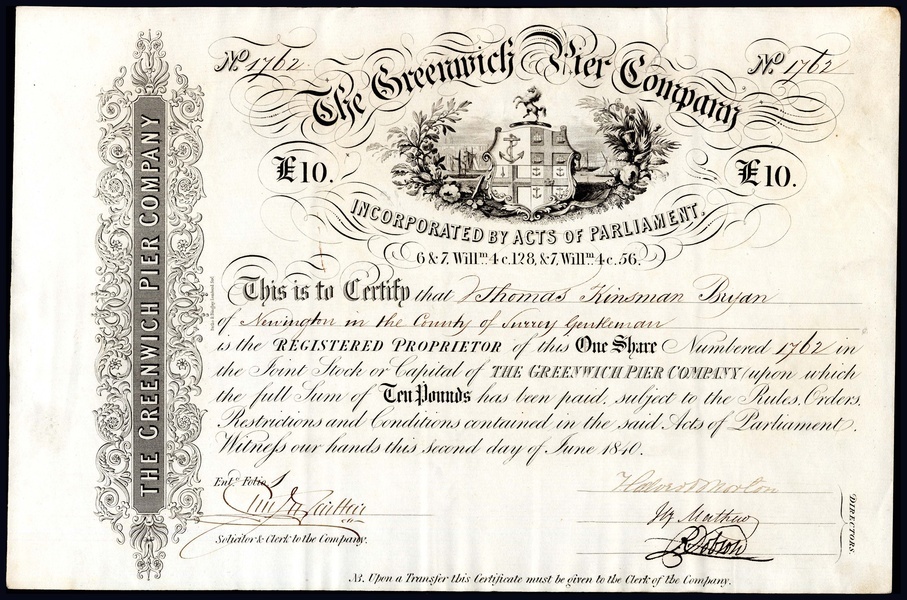 No 1762
No 1762
The Greenwich Pier Company
£10.
£10.
INCORPORATED BY ACTS OF PARLIAMENT.
6 & 7, Willm. 4 c. 128, & 7, Willm. 4 c. 56.
THE GREENWICH PIER COMPANY
This is to Certify that Thomas Kinsman Bryan
of Newington in the County of Surrey Gentleman
is the REGISTERED PROPRIETOR of this One Share Numbered 1762 in
the Joint Stock or Capital of THE GREENWICH PIER COMPANY (upon which
the full Sum of Ten Pounds has been paid, subject to the Rules, Orders,
Restrictions and Conditions contained in the said Acts of Parliament.
Witness our hands this second day of June 1840.
Entd. Folio
Solicitor & Clerk to the Company.
DIRECTORS.
NB. Upon a Transfer this Certificate must be given to the Clerk of the Company.